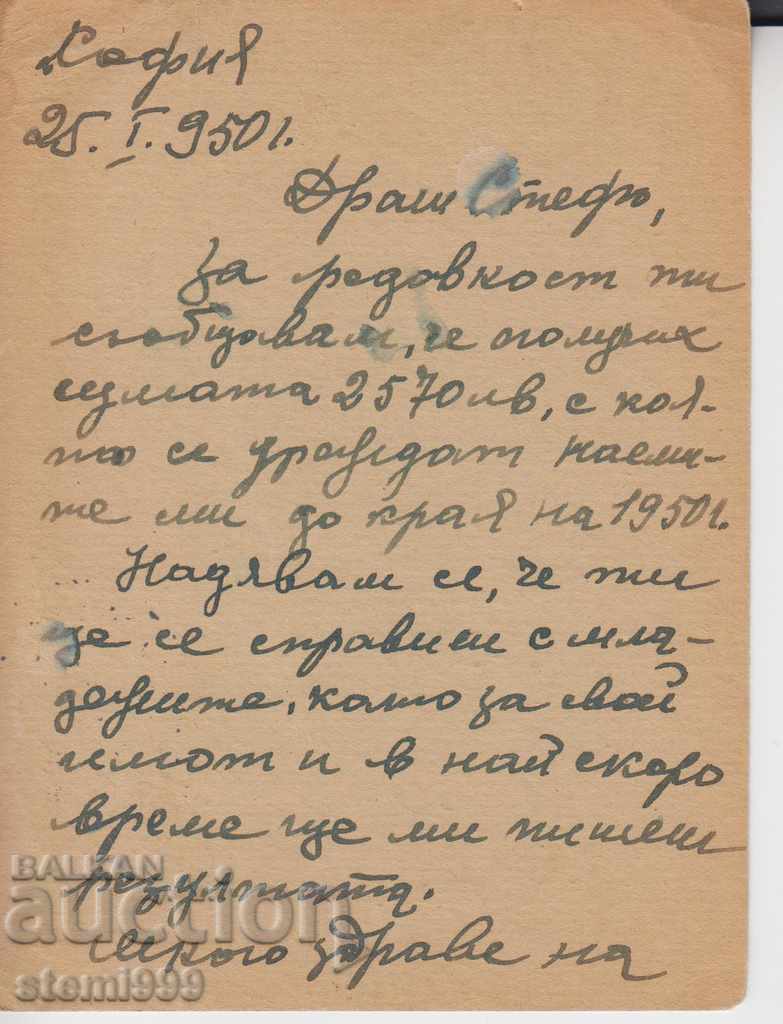 София
25. I. 950 г.
Драги Стефо,
За редовност ти
съобщавам, че получих
сумата 2570 лв, с коя-
то се уреждат наеми-
те ми до края на 1950 г.
Надявам се, че ти
ще се справиш с мла-
дежите, като за свой
имот и в най скоро
време ще ми пишеш
резултата.
Много здраве на
BALKAN
auction
stemi999